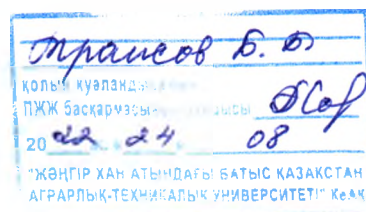 Траисов Б. Б
қолын куәланд
ПЖЖ басқармасы
2022 24 08
"ЖӘҢГІР ХАН АТЫНДАҒЫ БАТЫС ҚАЗАҚСТАН
АГРАРЛЫҚ-ТЕХНИКАЛЫҚ УНИВЕРСИТЕТІ" КеАҚ